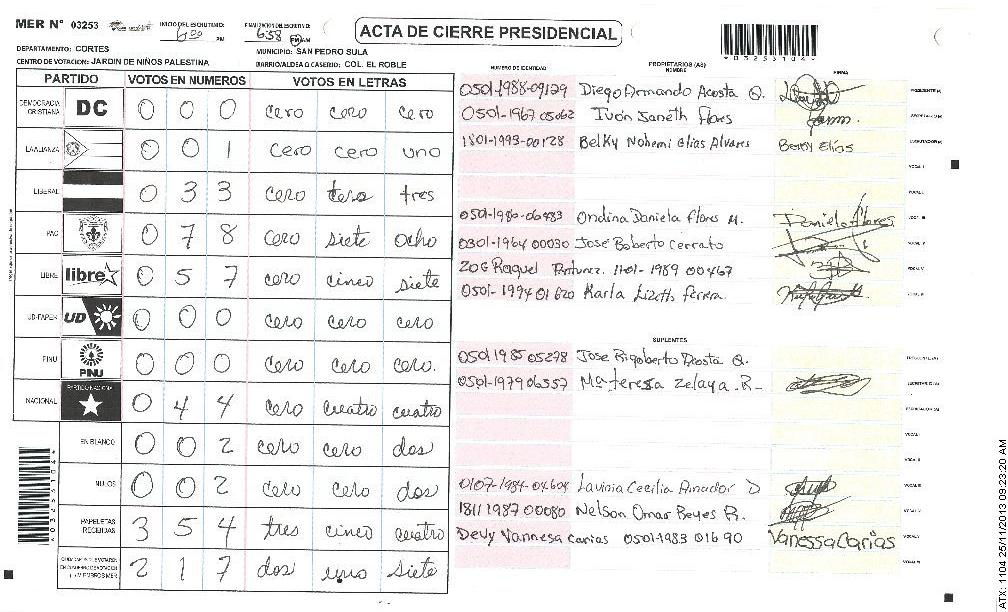 MER N° 03253
INICIO DEL ESCRUTINIO:
6:00 PM
FINALIZACION DEL ESCRUTINIO:
6:58 PM AM
ACTA DE CIERRE PRESIDENCIAL
*03253104*
DEPARTAMENTO: CORTES
MUNICIPIO: SAN PEDRO SULA
CENTRO DE VOTACION: JARDIN DE NIÑOS PALESTINA
BARRIO/ALDEA O CASERIO: COL. EL ROBLE
PARTIDO VOTOS EN NUMEROS VOTOS EN LETRAS
DEMOCRACIA CRISTIANA DC 0 0 0 cero cero cero
LA ALIANZA 0 0 1 cero cero uno
LIBERAL 0 3 3 cero tres tres
PAC 0 7 8 cero siete ocho
LIBRE libre 0 5 7 cero cinco siete
UD-FAPER UD 0 0 0 cero cero cero
PINU PINU 0 0 0 cero cero cero.
NACIONAL PARTIDO NACIONAL 0 4 4 cero cuatro cuatro
EN BLANCO 0 0 2 cero cero dos
NULOS 0 0 2 cero cero dos
PAPELETAS RECIBIDAS 3 5 4 tres cinco cuatro
MIEMBROS MER 2 1 7 dos uno siete
NUMERO DE IDENTIDAD PROPIETARIOS (AS) NOMBRE FIRMA
0501-1988-09129 Diego Armando Acosta Q. PRESIDENTE (A)
0501-1967 05062 Ivon Janeth Flores SECRETARIO (A)
1801-1993-00128 Belky Nohemi Elias Alvares Belky Elias ESCRUTADOR (A)
VOCAL I
VOCAL II
0501-1986-06483 Ondina Daniela Flores M. Daniela Flores VOCAL III
0301-1964 00030 Jose Roberto Cerrato VOCAL IV
Raquel 1101-1989 00467 VOCAL V
0501-1994 01620 Karla Lizeth VOCAL VI
SUPLENTES
0501 1985 05278 Jose Rigoberto Acosta Q. PRESIDENTE (A)
0501-1979 06357 Ma teresa Zelaya R- SECRETARIO (A)
ESCRUTADOR (A)
VOCAL I
VOCAL II
0107-1984-04604 Lavinia Cecilia Amador D VOCAL III
1811 1987 00080 Nelson Omar Reyes R. VOCAL IV
Devy Vannesa Carias 0501-1983 01690 Vanessa Carias VOCAL V
VOCAL VI
*03253104*
ATX: 1104 25/11/2013 09:23:20 AM